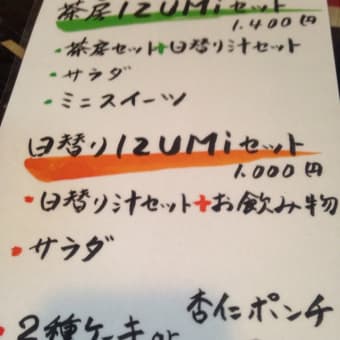 茶房IZUMiセット
1.400円
・茶房セット+日替り汁セット
・サラダ
・ミニスイーツ
日替りIZUMiセット
1.000円
・日替り汁セット+お飲み物
・サラダ
杏仁ポンチ
・2種ケーキor